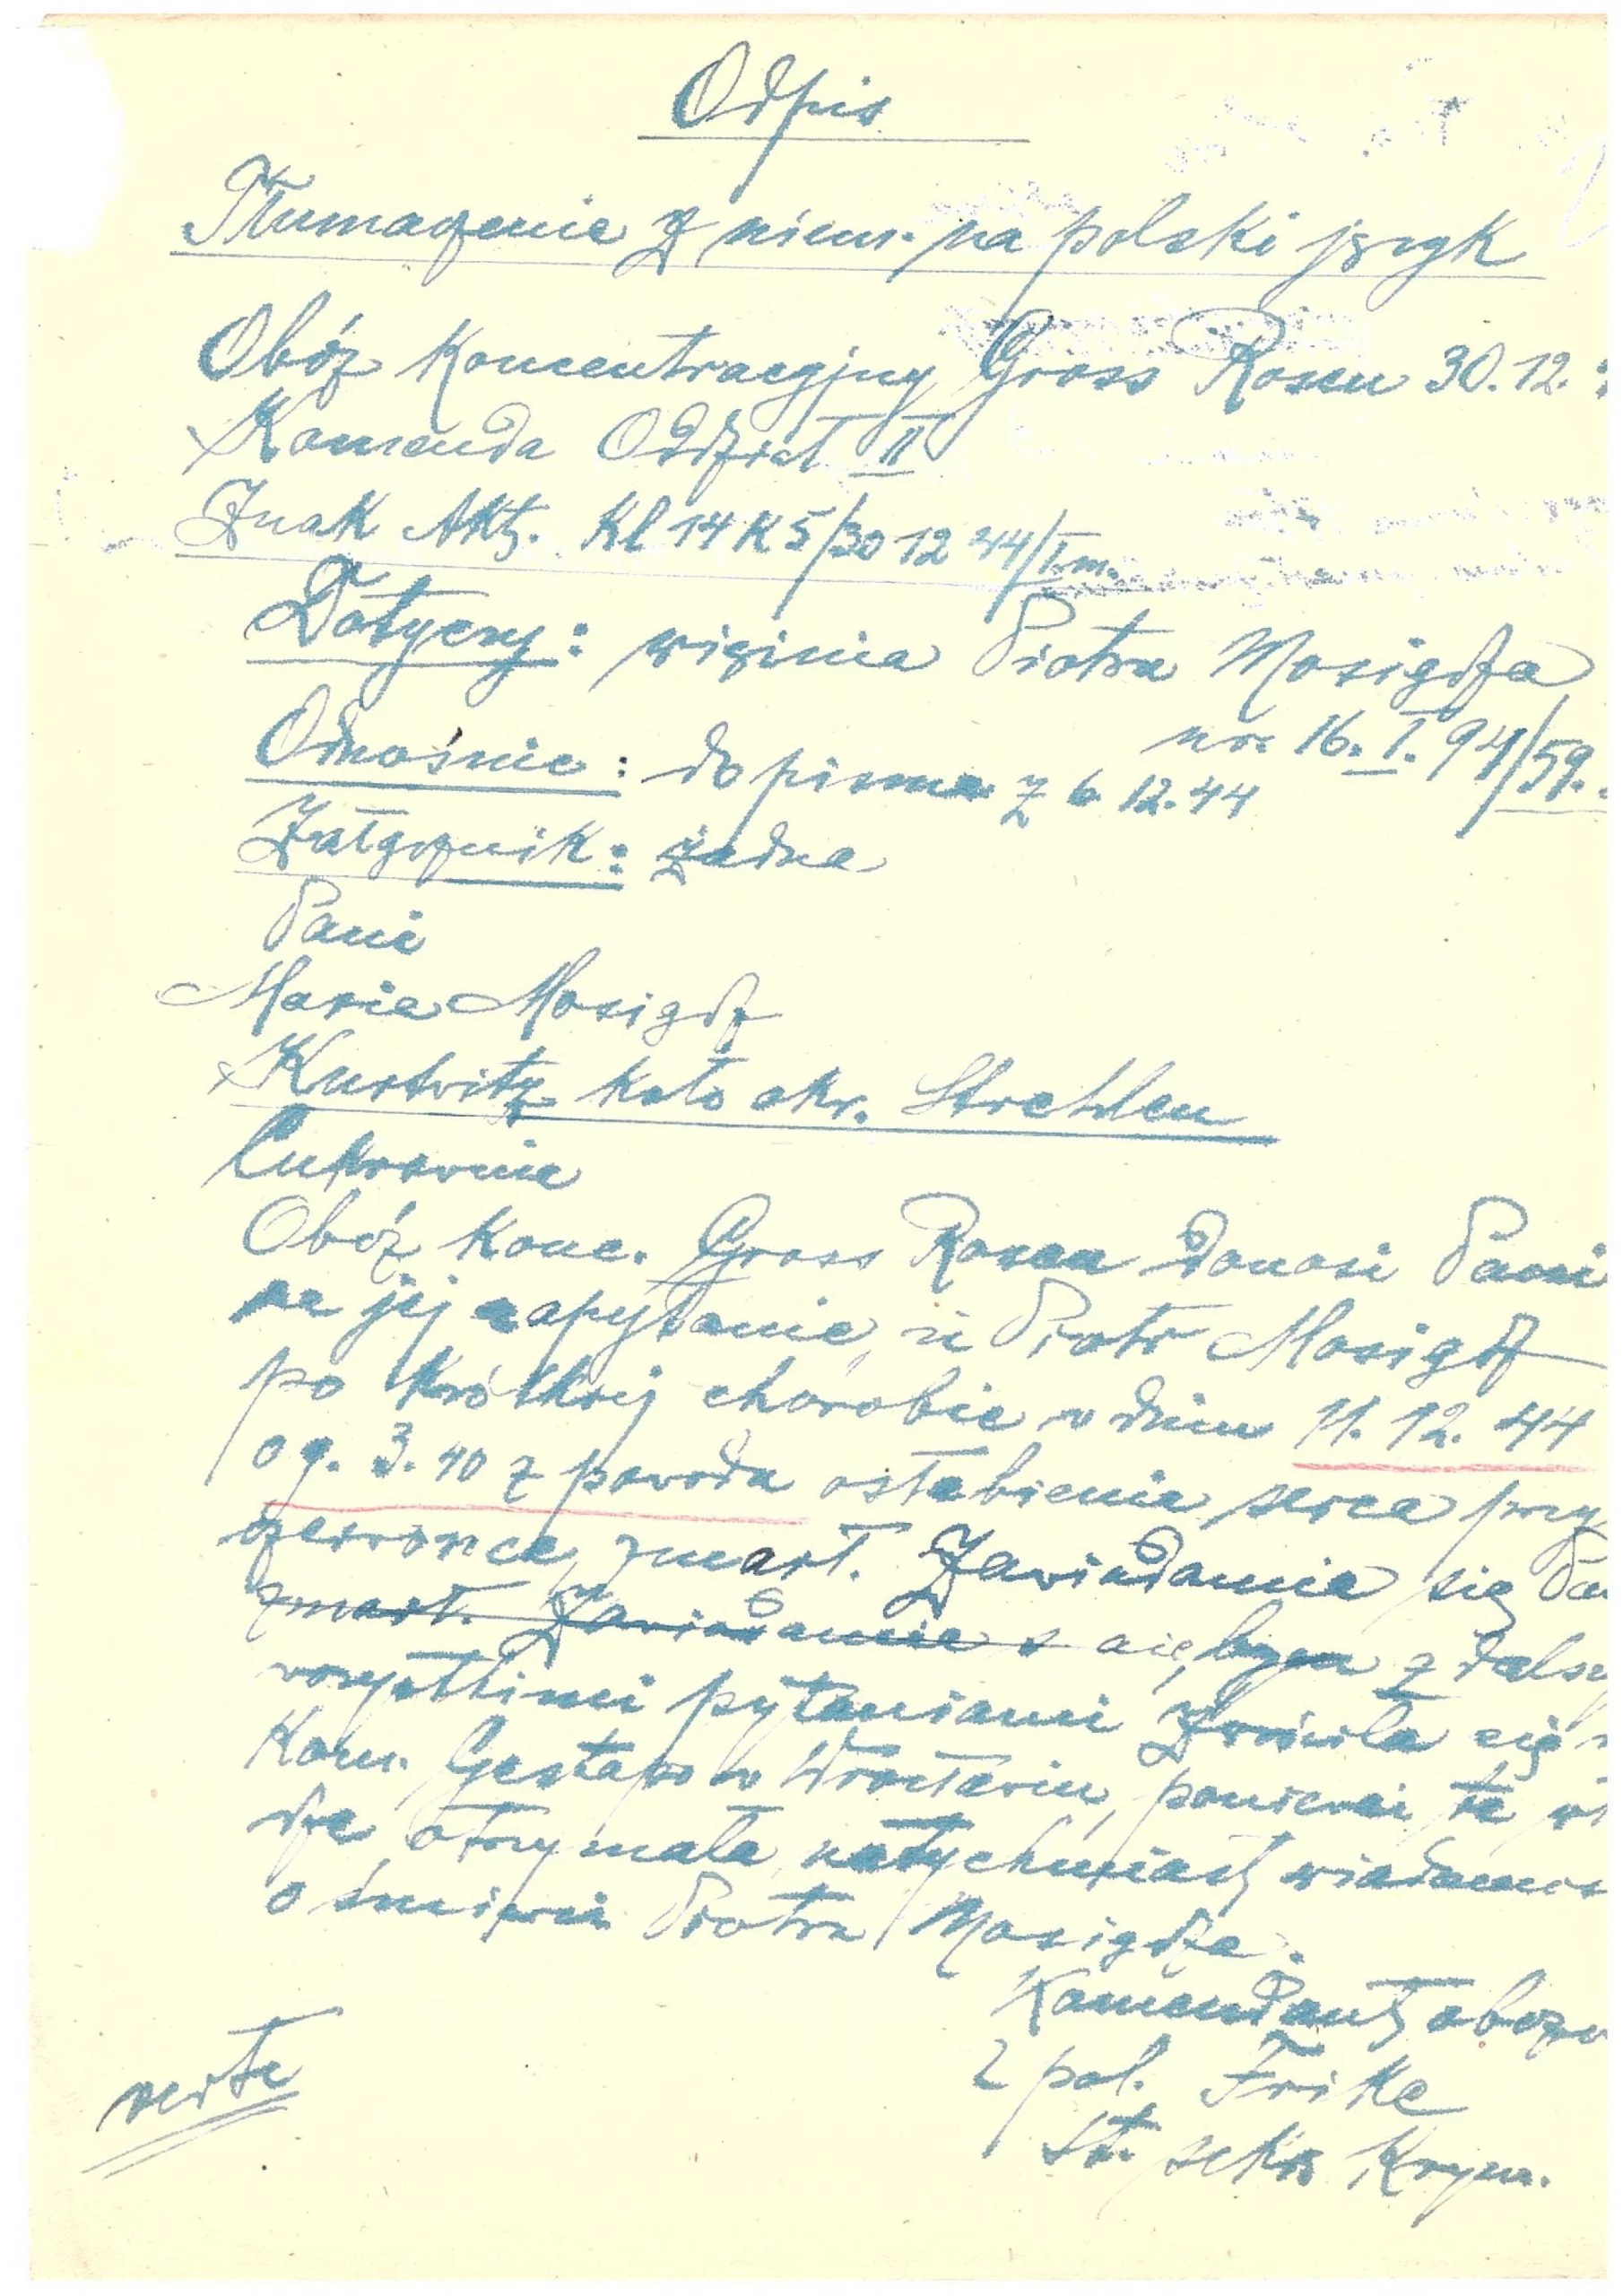 Odpis
Tłumaczenie z niem. na polski język
Obóz Koncentracyjny Gross Rosen 30.12.
Komenda Oddział II
Znak Akt. Kl 14 K 5/30 12 44/I.m.
Dotyczy: więźnia Piotra Mosigdza
nr. 16. I. 94/59.
Odnośnie: do pisma z 6 12.44
Załącznik: żadna
Pani
Maria Mosigdz
Kurtwitz koło okr. Strehlen
Cukrownia
Obóz konc. Gross Rosen donosi Pani
na jej zapytanie, iż Piotr Mosigdz
po krótkiej chorobie w dniu 11. 12. 44
o g. 3.40 z powodu osłabienia serca przy
czerwonce, zmarł. Zawiadamia się Pa
zmarł. Zawiadamia s się, by z dalsz
wszystkimi pytaniami zwróciła się
Kom. Gestapo w Wrocławiu, ponieważ ta wł
dza otrzymała natychmiast wiadomoś
o śmierci Piotra Mosigdza.
Komendant obozu
z pol. Frike
St. sekr. Krym.
verte